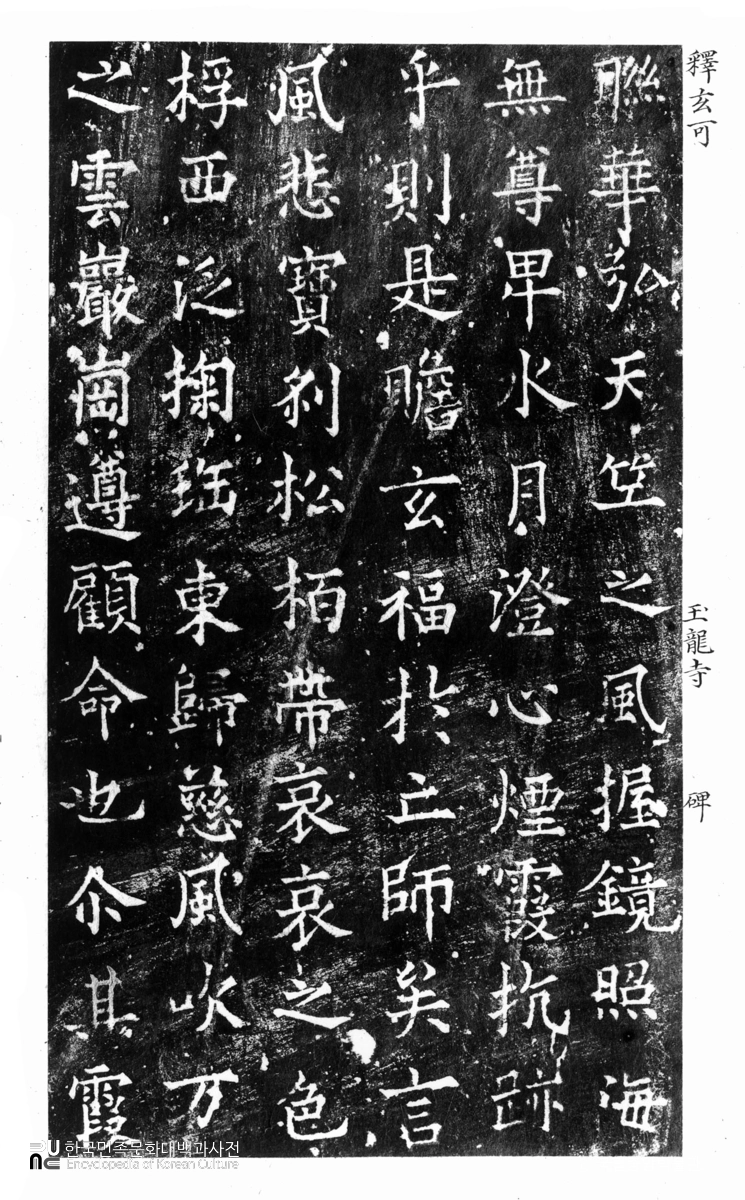 釋玄可 玉龍寺 碑
聯華弘天竺之風握鏡照海
無尊卑水月澄心煙霞抗跡
乎則是瞻玄福於亡師矣言
風悲寶刹松栢帶哀哀之色
桴西泛掬珤東歸慈風吹万
之雲巖崗遵顧命也尒其霞
한국민족문화대백과사전
Encyclopedia of Korean Culture